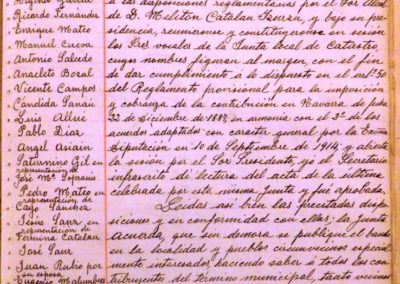 Ricardo Fernández
Enrique Mateo
Manuel Cueva
Antonio Salcedo
Anacleto Bozal
Vicente Campos
Cándida Sanai
Luis Allue
Pablo Diaz
Angel Asiain
Saturnino Gil en
representación de
José Mª Sopranis
Pedro Mateo en
representación de
Cayo Sánchez
José Sanz en
representación de
Fermina Catalan
José Sanz
Juan Rubio por
su esposa
Eugenio Malumbres
a las disposiciones reglamentarias por el Sor Alcal
de D. Meliton Catalan y bajo su pre
sidencia, reunieronse y constituyeronse en sesión
los Sres vocales de la Junta local de Catastro,
cuyos nombres figuran al margen, con el fin
de dar cumplimiento a lo dispuesto en el artº 50
del Reglamento provisional para la imposición
y cobranza de la contribución en Navarra de fecha
22 de diciembre de 1887, en armonia con el 3º de los
acuerdos adoptados con caracter general por la Excma
Diputación en 10 de Septiembre de 1914, y abierta
la sesión por el Sor Presidente, yó el Secretario
infrascrito di lectura del acta de la última
celebrada por esta misma Junta y fué aprobada.
Leidas asi bien las precitadas dispo
siciones y en conformidad con ellas; la Junta
Acuerda, que sin demora se publique el bando
en la localidad y pueblos circunvecinos especial
mente interesados, haciendo saber á todos los con
tribuyentes del termino municipal, tanto vecinos